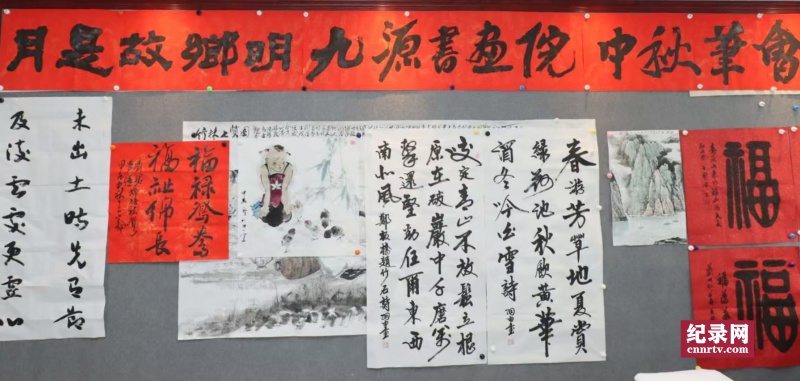 月是故鄉明九源書畫院中秋筆會
未出土時先有節
及凌雲處更虚心
福祿鴛鴦
福祉綿長
竹林七賢圖
咬定青山不放鬆立根
原在破巖中千磨萬
擊還堅勁任爾東西
南北風 鄭板橋題竹石詩
春游芳草地夏赏
绿荷池秋飲黄華
酒冬吟白雪詩
福
福
纪录网
cnnrtv.com